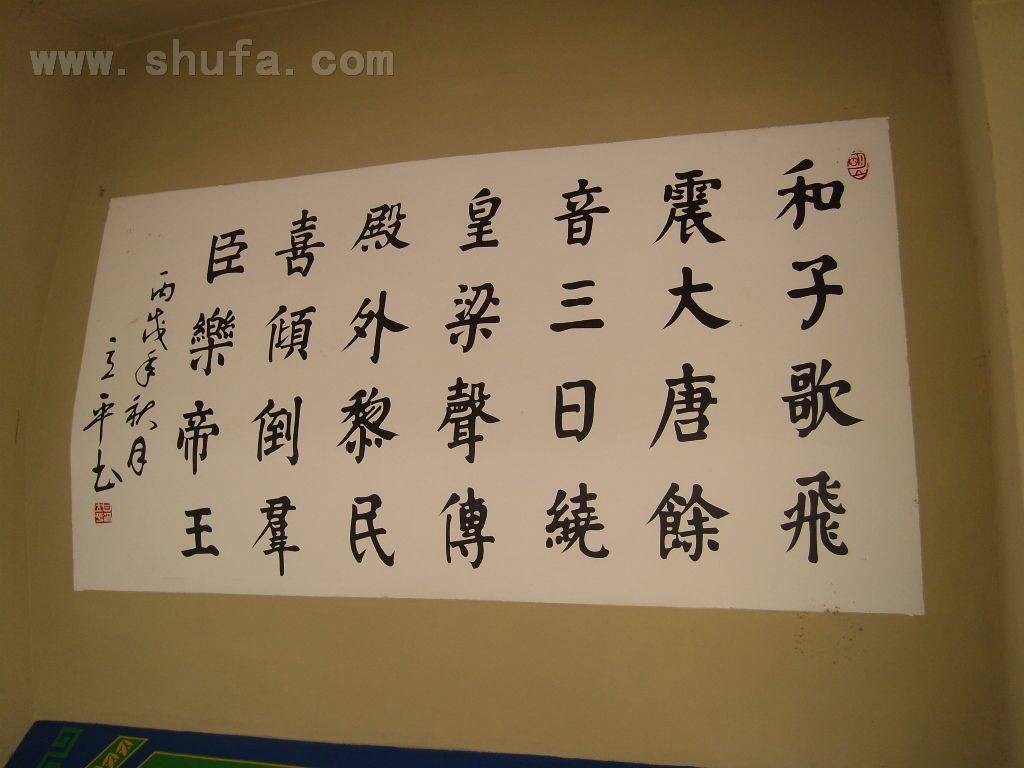 www.shufa.com
和子歌飛
震大唐餘
音三日繞
皇梁聲傳
殿外黎民
喜傾倒羣
臣樂帝王
丙戌年秋月
立平书